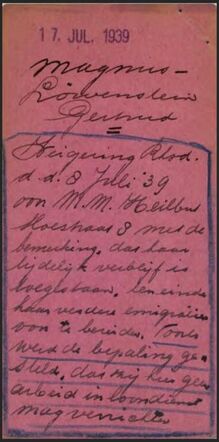 17 JUL. 1939
Magnus-
Löwenstein
Gertrud
=
d.d. 8 Juli '39
voor M. M. Heilbut
8 met de
bemerking, dat haar
tijdelijk verblijf is
toegestaan, ten einde
haar verdere emigratie
voor te bereiden. Tevens
werd de bepaling ge-
steld, dat zij hier geen
arbeid in loondienst
mag verrichten